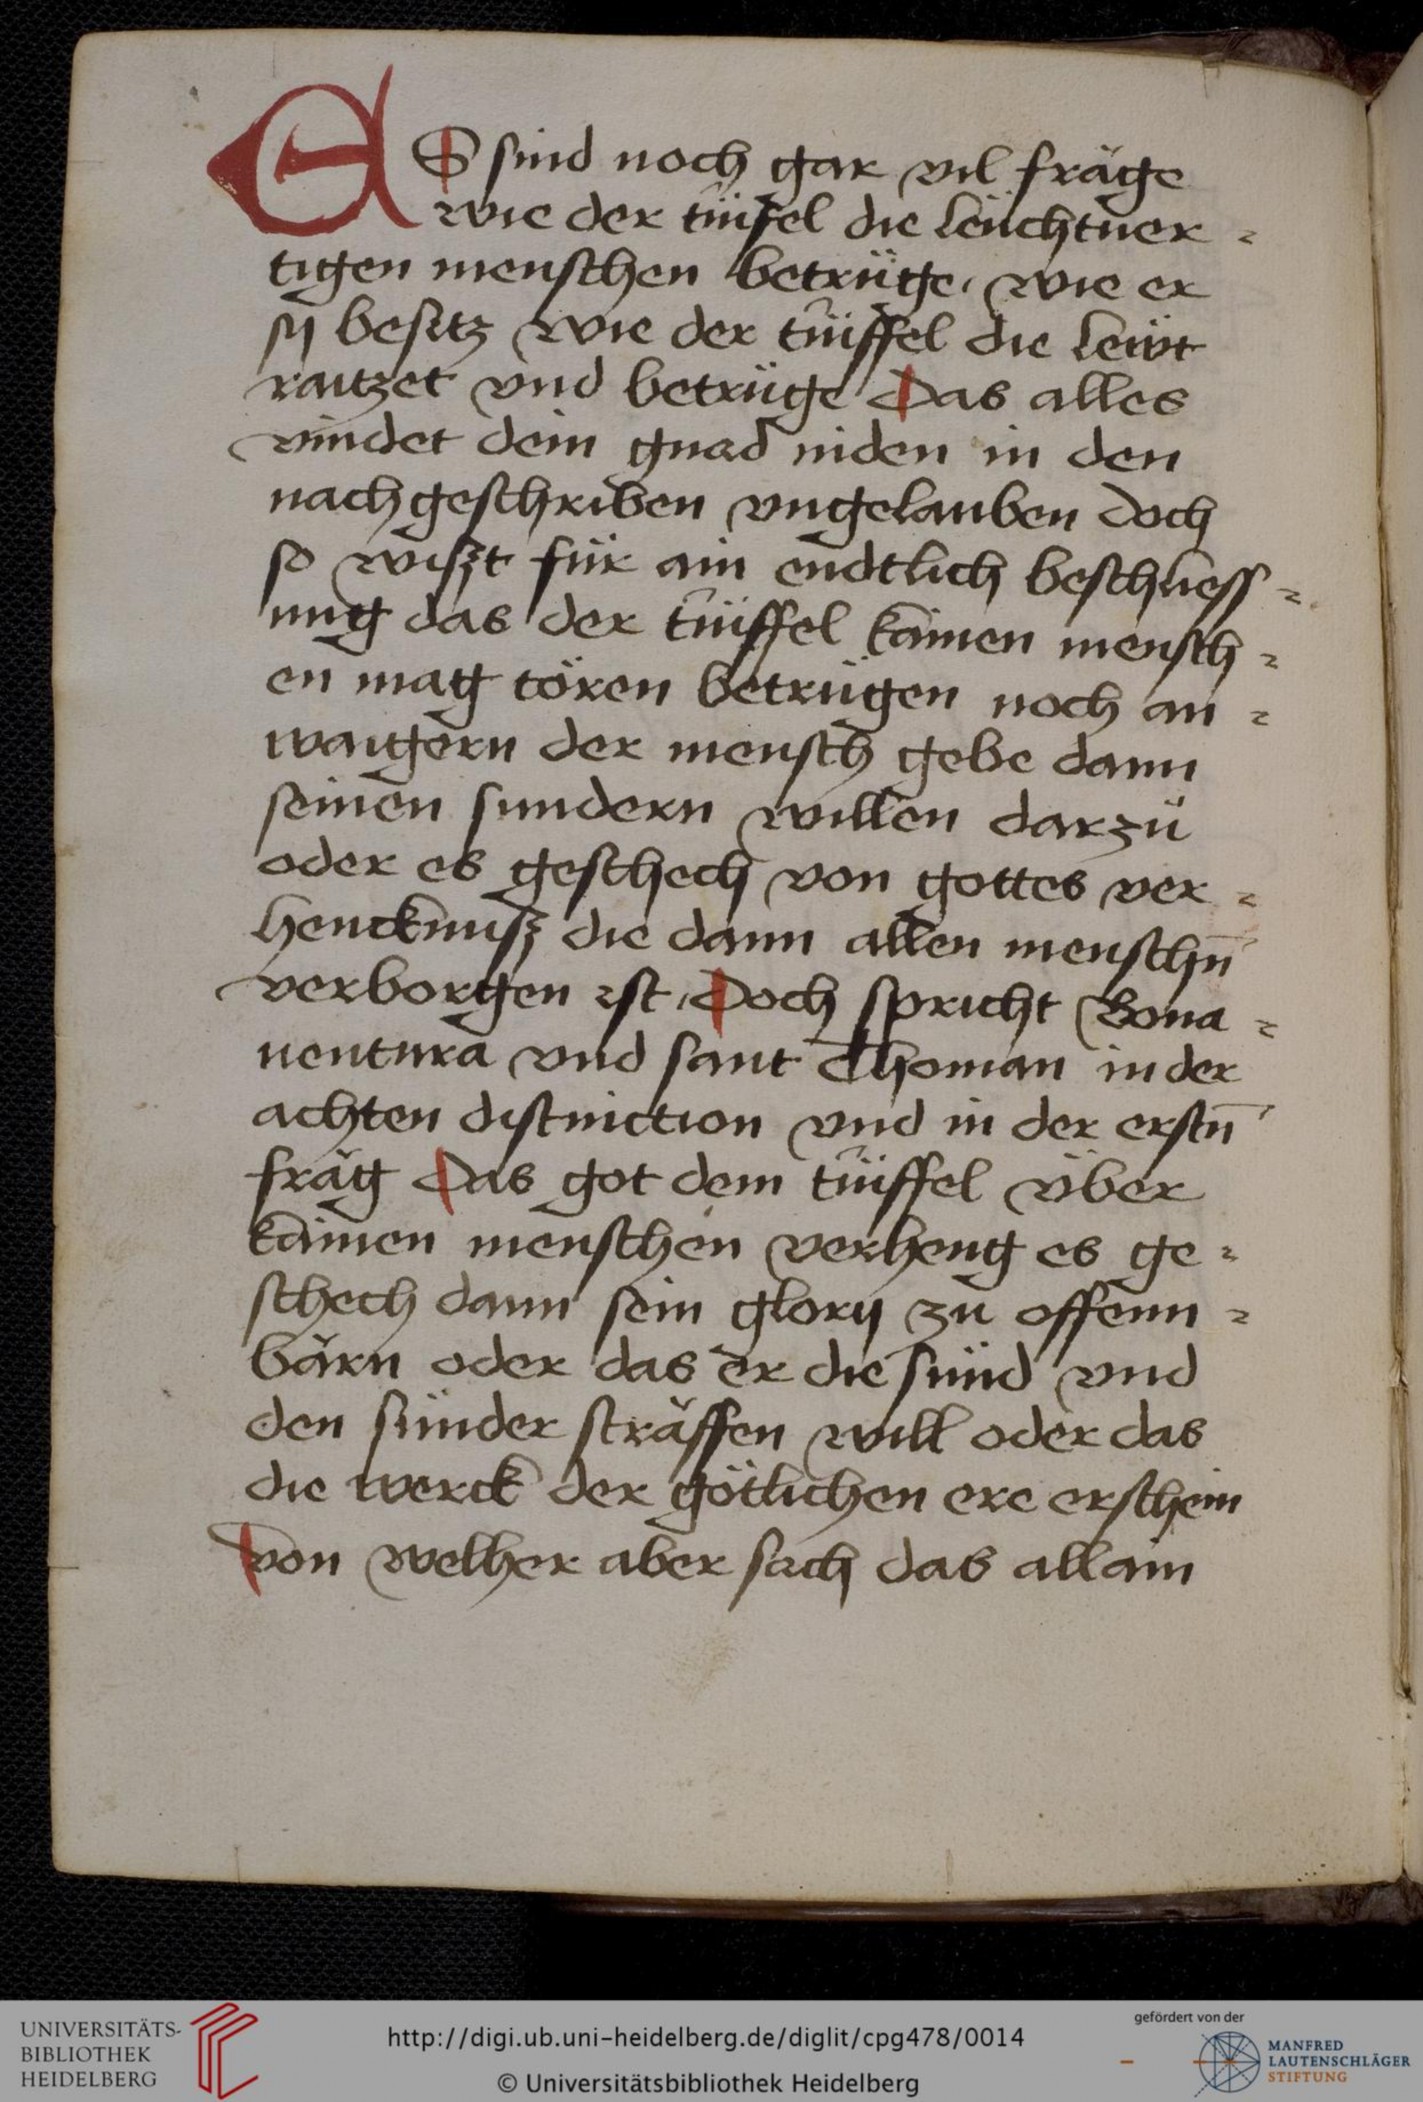 ES sind noch gar vil fräge
wie der tüifel die leüchtuer =
tigen menschen betrüge, wie er
sy besitz wie der tüiffel die lewt
raitzet vnd betrüge Das alles
vindet dein gnad niden in den
nachgeschriben vngelauben doch
so wiszt für ain endtlich beschliess =
ung das der tüiffel kainen mensch =
en mag tören betrügen noch an =
waigern der mensch gebe dann
seinen sundern willen darzü
oder es geschech von gottes ver =
hencknusz die dann allen menschn̄
verborgen ist, Doch spricht Bona =
uentura vnd sant Thoman in der
achten distinction vnd in der erstn̄
fräg Das got dem tüiffel über
kainen menschen verheng es ge =
schech dann sein glory zu offenn =
bärn oder das er die sünd vnd
den sünder sträffen will oder das
die werck der götlichen ere erschein
von welher aber sach das allain
UNIVERSITÄTS-
BIBLIOTHEK
HEIDELBERG
http://digi.ub.uni-heidelberg.de/diglit/cpg478/0014
© Universitätsbibliothek Heidelberg
gefördert von der
MANFRED
LAUTENSCHLÄGER
STIFTUNG